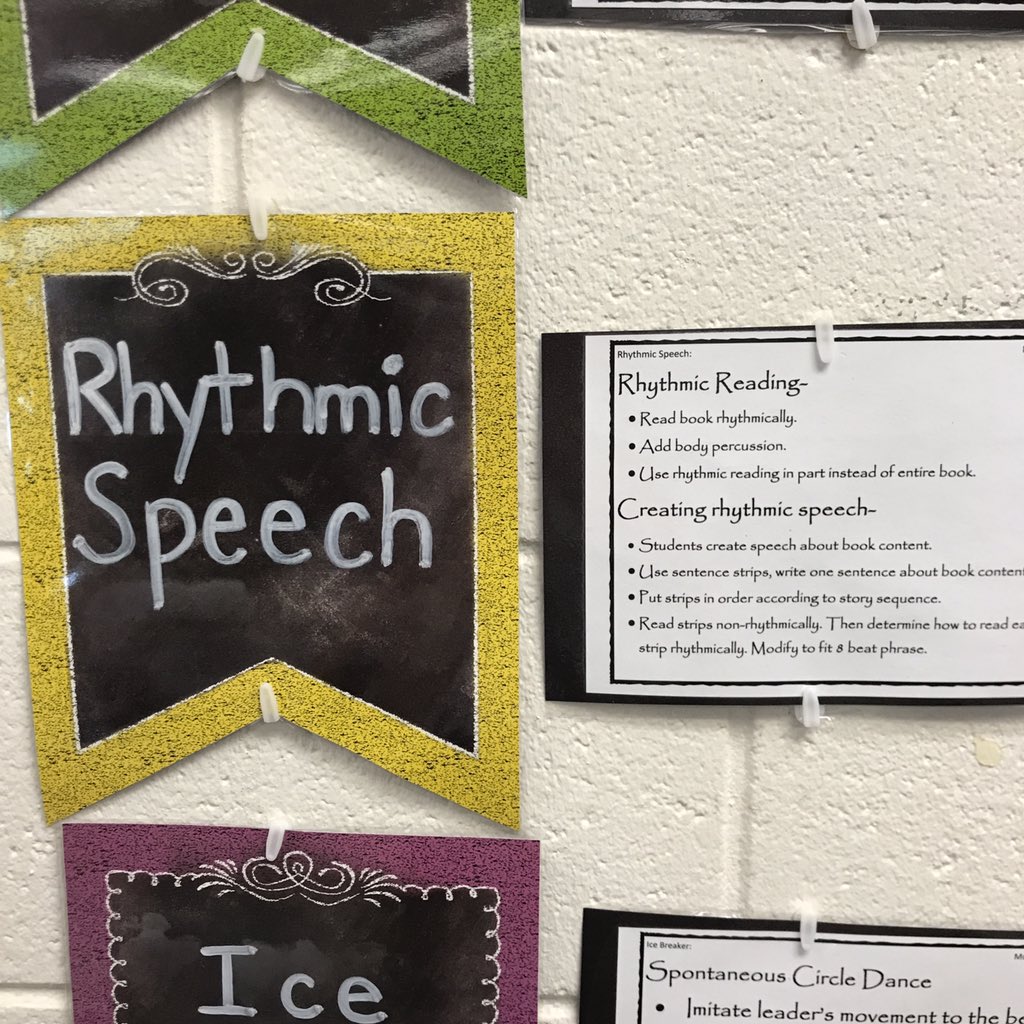 Rhythmic
Speech
Rhythmic Speech:
Rhythmic Reading-
• Read book rhythmically.
• Add body percussion.
• Use rhythmic reading in part instead of entire book.
Creating rhythmic speech-
• Students create speech about book content.
• Use sentence strips, write one sentence about book content
• Put strips in order according to story sequence.
• Read strips non-rhythmically. Then determine how to read
strip rhythmically. Modify to fit 8 beat phrase.
Ice
Ice Breaker:
Spontaneous Circle Dance
• Imitate leader's movement to the